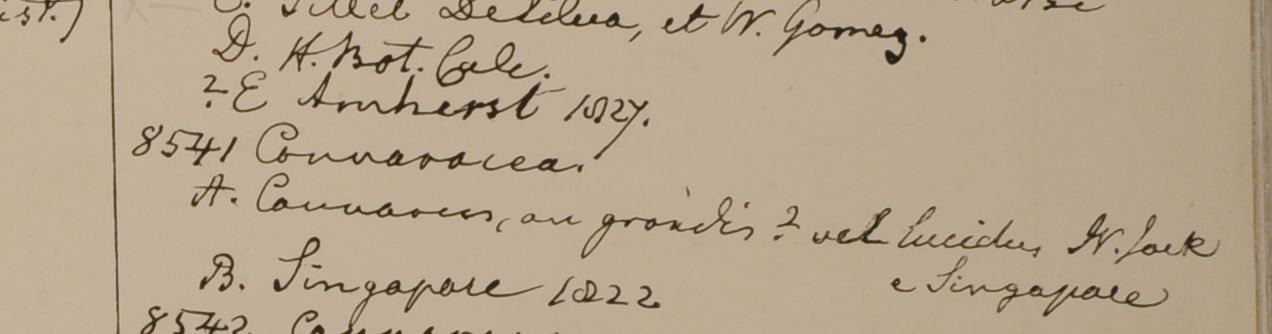 et W. Gomez.
D. H. Bot. Calc.
? E Amherst 1827.
8541 Connaracea.
A. Connarus, an grandis? vel lucidus W. Jack
e Singapore
B. Singapore 1822
8542